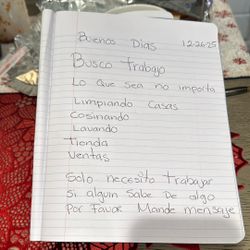 Buenos Dias 12-26-25
Busco trabajo
Lo Que sea no importa
Limpiando casas
Cosinando
Lavando
Tienda
Ventas
Solo necesito trabajar
Si alguin sabe De algo
Por Favor Mande mensaje